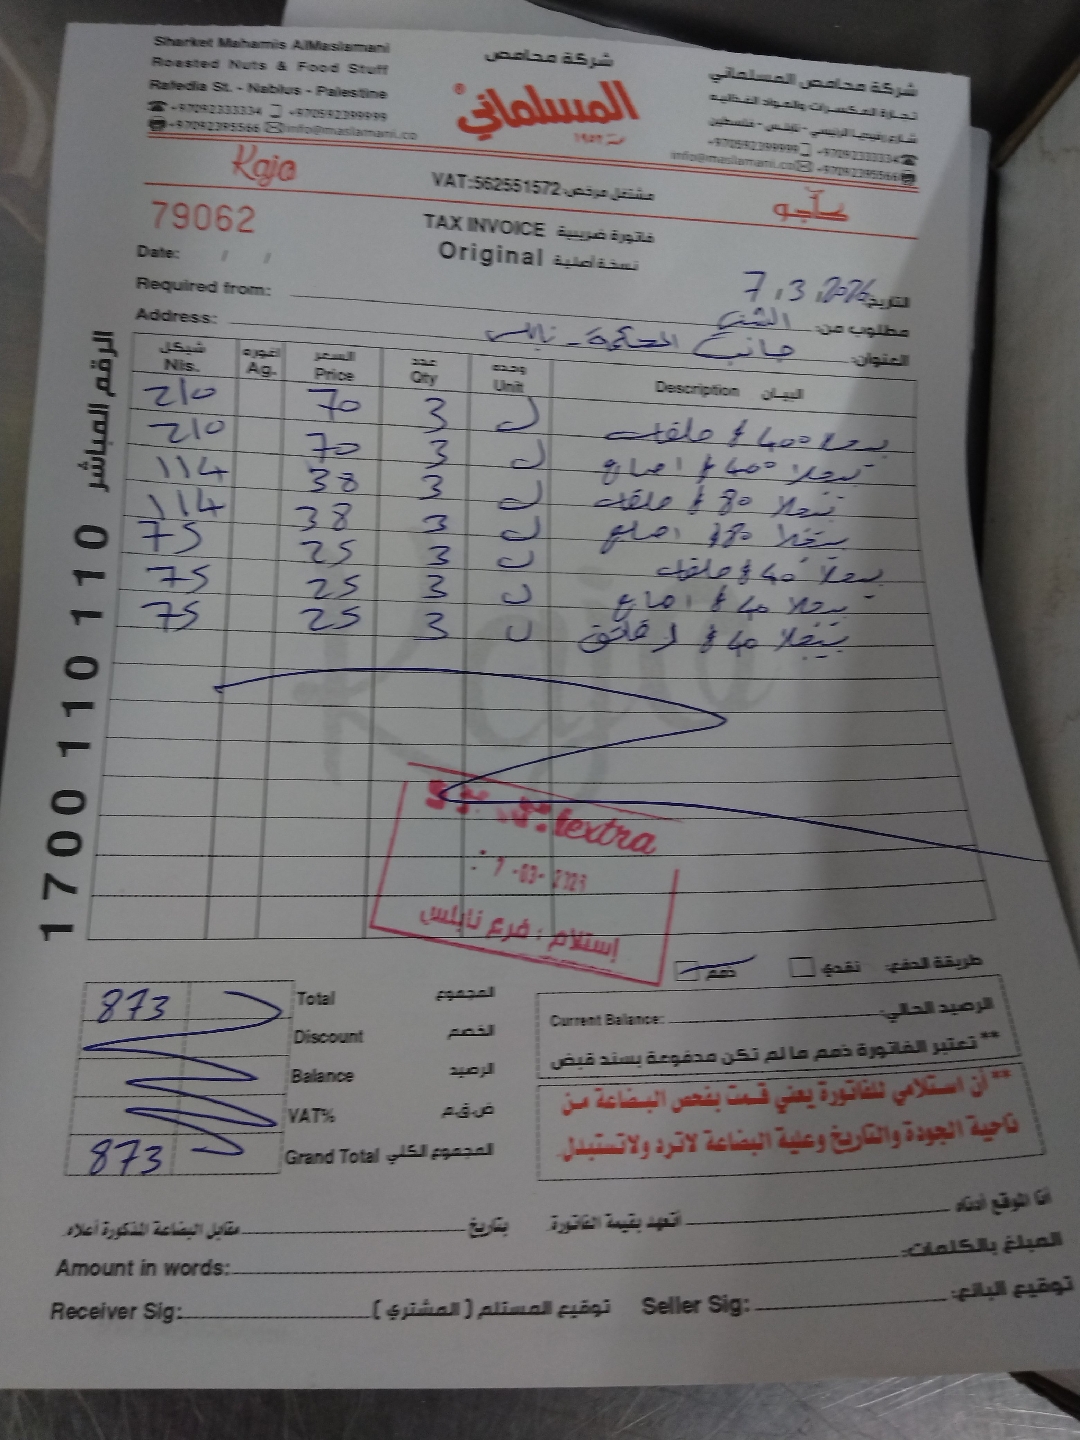 Sharket Mahamis AlMaslamani
Roasted Nuts & Food Stuff
Rafedia St. - Nablus - Palestine
+97092333334 +970592399999
+97092395566 info@maslamani.co
شركة محامص
المسلماني
شركة محامص المسلماني
تجارة المكسرات والمواد الغذائية
شارع رفيديا الرئيسي - نابلس - فلسطين
+970592399999 +97092333334
info@maslamani.co +97092395566
Kaja
VAT:562551572 مشتغل مرخص
كاجو
79062
TAX INVOICE فاتورة ضريبية
Original نسخة أصلية
Date: / /
التاريخ: 7 , 3 , 2026
Required from: مطلوب من:
Address: العنوان: جانب المحكمة - نابلس
شيكل اغورة السعر عدد وحدة البيان
Nls. Ag. Price Qty Unit Description
210 70 3 400
210 70 3 400
114 38 3 80
114 38 3 80
75 25 3 40
75 25 3 40
75 25 3 40
الرقم المباشر 1700 110 110
extra
7-03-2026
إستلام : فرع نابلس
طريقة الدفع: نقدي ذمم
873 Total المجموع
Discount الخصم
Balance الرصيد
VAT% ض.ق.م
873 Grand Total المجموع الكلي
Current Balance: الرصيد الحالي:
** تعتبر الفاتورة ذمم ما لم تكن مدفوعة بسند قبض
** أن استلامي للفاتورة يعني قمت بفحص البضاعة من
ناحية الجودة والتاريخ وعلية البضاعة لاترد ولاتستبدل.
أنا الموقع أدناه أتعهد بقيمة الفاتورة. بتاريخ مقابل البضاعة المذكورة أعلاه.
Amount in words: المبلغ بالكلمات:
Receiver Sig: توقيع المستلم ( المشتري ) Seller Sig: توقيع البائع: